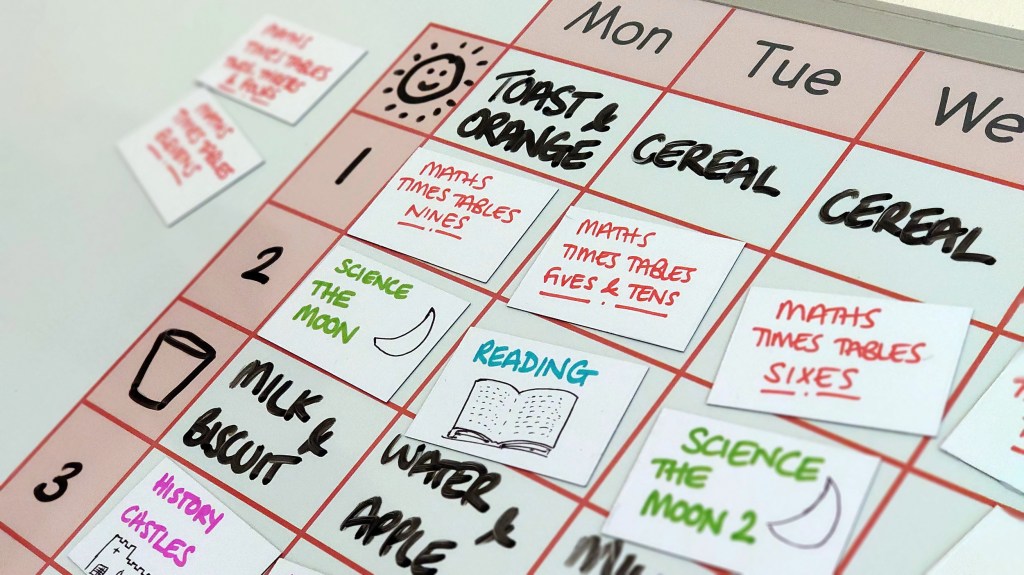 Mon
Tue
We
TOAST &
ORANGE
CEREAL
CEREAL
1
MATHS
TIMES TABLES
NINES
MATHS
TIMES TABLES
FIVES & TENS
MATHS
TIMES TABLES
SIXES
2
SCIENCE
THE
MOON
READING
SCIENCE
THE
MOON 2
MILK &
BISCUIT
WATER &
APPLE
3
HISTORY
CASTLES
MATHS
TIMES TABLES
& FOURS